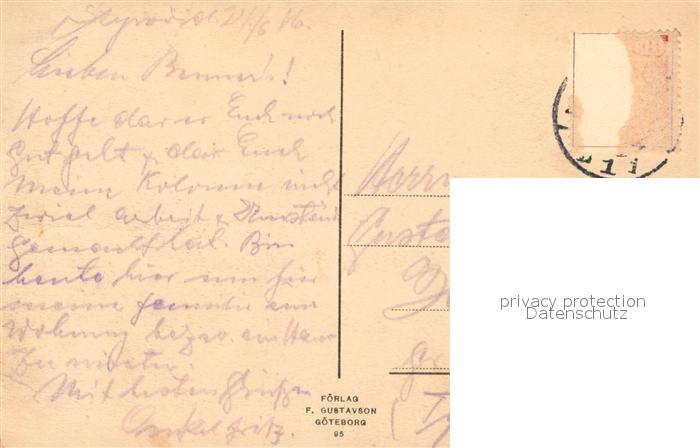 Lieben Benners!
Hoffe dass es Euch noch
gut geht & dass Euch
meine Kolonne nicht
zuviel Arbeit & Umstände
gemacht hat. Bin
heute hier um für
meine Familie eine
Wohnung bezw. ein Haus
zu mieten.
Mit besten Grüßen
Onkel Fritz.
Herrn
Gusta
FÖRLAG
F. GUSTAVSON
GÖTEBORG
95
privacy protection
Datenschutz